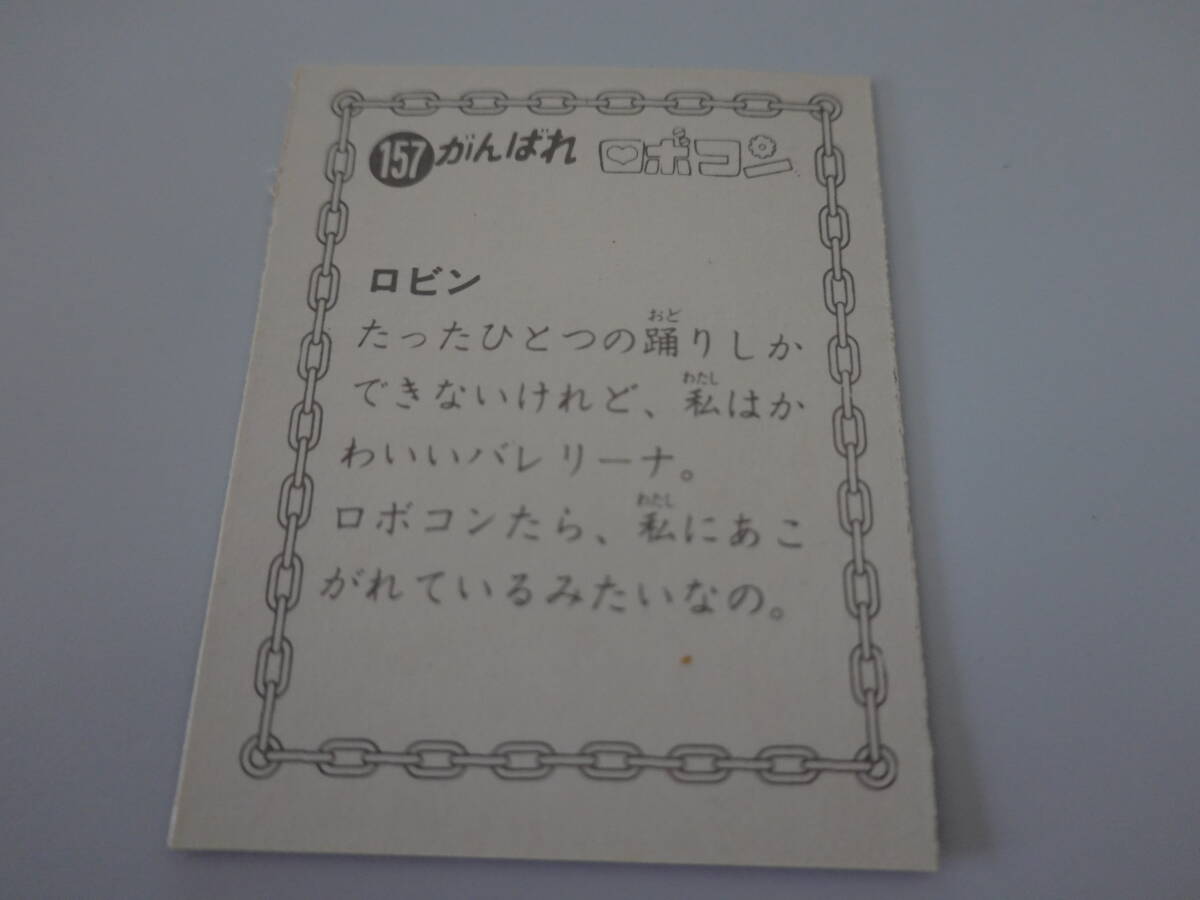 157 がんばれ ロボコン
ロビン
たったひとつの踊りしか
できないけれど、私はか
わいいバレリーナ。
ロボコンたら、私にあこ
がれているみたいなの。